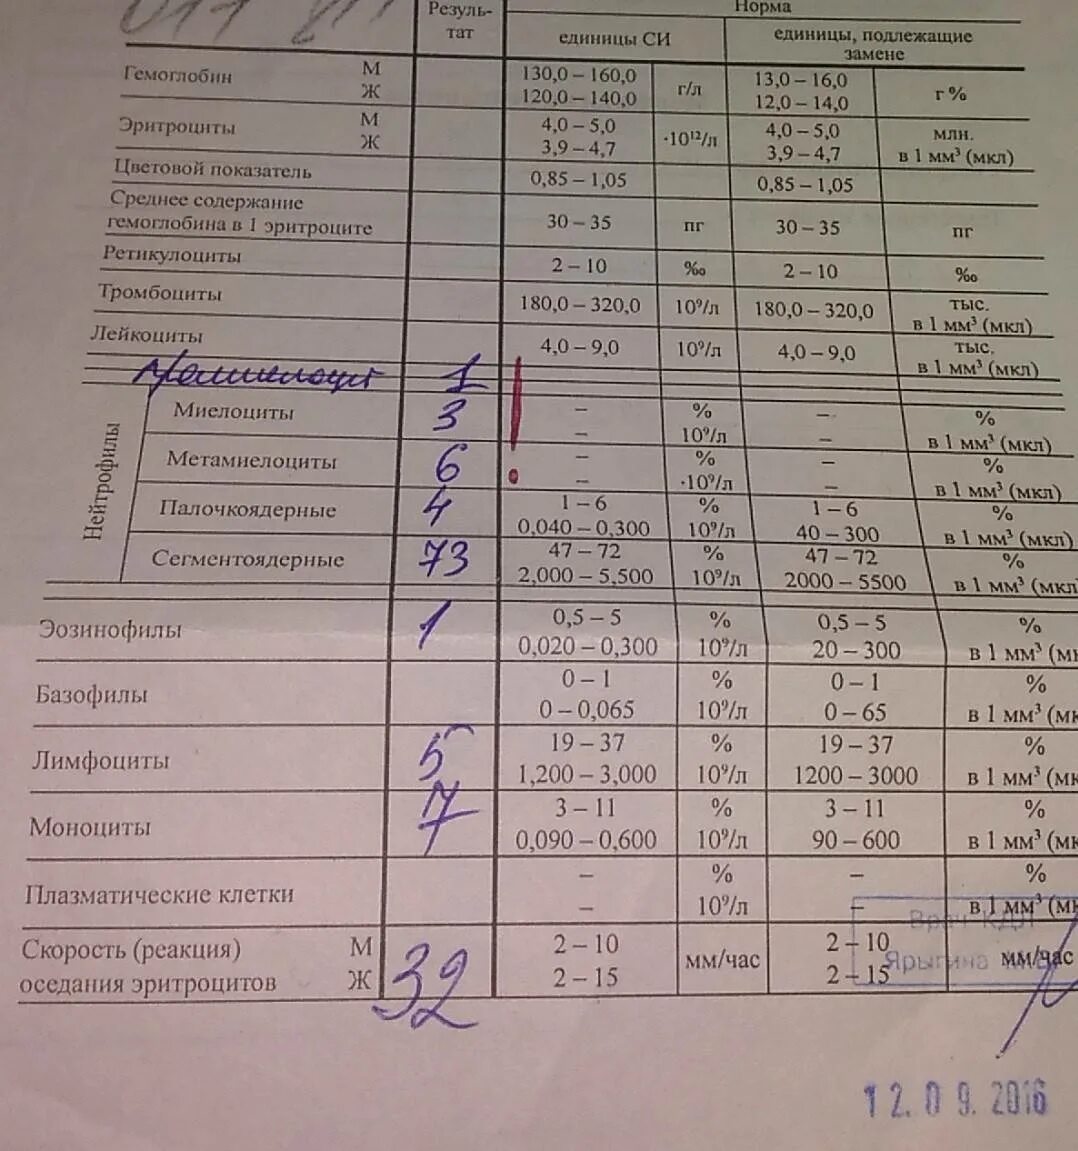 Резуль-
тат
Норма
единицы СИ
единицы, подлежащие
замене
Гемоглобин М 130,0 – 160,0 г/л 13,0 – 16,0 г%
Ж 120,0 – 140,0 12,0 – 14,0
Эритроциты М 4,0 – 5,0 ·10¹²/л 4,0 – 5,0 млн.
Ж 3,9 – 4,7 3,9 – 4,7 в 1 мм³ (мкл)
Цветовой показатель 0,85 – 1,05 0,85 – 1,05
Среднее содержание
гемоглобина в 1 эритроците 30 – 35 пг 30 – 35 пг
Ретикулоциты 2 – 10 ‰ 2 – 10 ‰
Тромбоциты 180,0 – 320,0 10⁹/л 180,0 – 320,0 тыс.
в 1 мм³ (мкл)
Лейкоциты 4,0 – 9,0 10⁹/л 4,0 – 9,0 тыс.
в 1 мм³ (мкл)
1
Нейтрофилы
Миелоциты 3 – % – %
– 10⁹/л – в 1 мм³ (мкл)
Метамиелоциты 6 – % – %
– ·10⁹/л – в 1 мм³ (мкл)
Палочкоядерные 4 1 – 6 % 1 – 6 %
0,040 – 0,300 10⁹/л 40 – 300 в 1 мм³ (мкл)
Сегментоядерные 73 47 – 72 % 47 – 72 %
2,000 – 5,500 10⁹/л 2000 – 5500 в 1 мм³ (мкл
Эозинофилы 1 0,5 – 5 % 0,5 – 5 %
0,020 – 0,300 10⁹/л 20 – 300 в 1 мм³ (мк
Базофилы 0 – 1 % 0 – 1 %
0 – 0,065 10⁹/л 0 – 65 в 1 мм³ (мк
Лимфоциты 5 19 – 37 % 19 – 37 %
1,200 – 3,000 10⁹/л 1200 – 3000 в 1 мм³ (мк
Моноциты 7 3 – 11 % 3 – 11 %
0,090 – 0,600 10⁹/л 90 – 600 в 1 мм³ (мк
Плазматические клетки – % – %
– 10⁹/л – в 1 мм³ (мк
Врач КДЛ
Скорость (реакция) М 32 2 – 10 мм/час 2 – 10 мм/час
оседания эритроцитов Ж 2 – 15 2 – 15
Ярыгина
12.09.2016